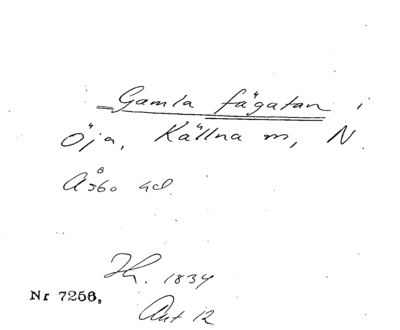 Gamla fägatan i
Öja, Källna m, N
Åsbo hd.
Hz. 1834
Nr 7256.
Akt 12